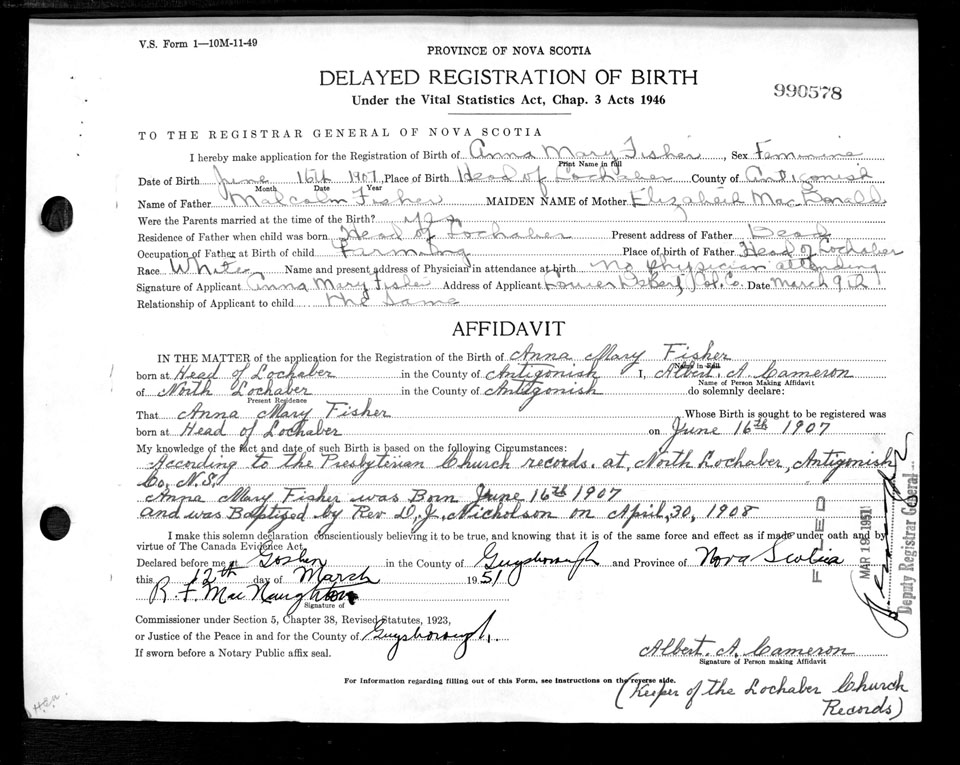 V.S. Form 1—10M-11-49
PROVINCE OF NOVA SCOTIA
DELAYED REGISTRATION OF BIRTH
Under the Vital Statistics Act, Chap. 3 Acts 1946
990578
TO THE REGISTRAR GENERAL OF NOVA SCOTIA
I hereby make application for the Registration of Birth of Anna Mary Fisher, Sex Feminine
Print Name in full
Date of Birth June 16th 1907 Place of Birth Head of Lochaber County of Antigonish
Month Date Year
Name of Father Malcolm Fisher MAIDEN NAME of Mother Elizabeth MacDonald
Were the Parents married at the time of the Birth? yes
Residence of Father when child was born Head of Lochaber Present address of Father Dead
Occupation of Father at Birth of child Farming Place of birth of Father Head of Lochaber
Race White Name and present address of Physician in attendance at birth No Physician attending
Signature of Applicant Anna Mary Fisher Address of Applicant Lower Debert, Col. Co. Date March 9th
Relationship of Applicant to child the Same
AFFIDAVIT
IN THE MATTER of the application for the Registration of the Birth of Anna Mary Fisher
Name in full
born at Head of Lochaber in the County of Antigonish I, Albert. A. Cameron
Name of Person Making Affidavit
of North Lochaber in the County of Antigonish do solemnly declare:
Present Residence
That Anna Mary Fisher Whose Birth is sought to be registered was
born at Head of Lochaber on June 16th 1907
My knowledge of the fact and date of such Birth is based on the following Circumstances:
According to the Presbyterian Church records. at, North Lochaber, Antigonish
Co, N.S,
Anna Mary Fisher was Born June 16th 1907
and was Baptized by Rev D, J, Nicholson on April, 30, 1908
I make this solemn declaration conscientiously believing it to be true, and knowing that it is of the same force and effect as if made under oath and by
virtue of The Canada Evidence Act.
Declared before me at Goshen in the County of Guysborough and Province of Nova Scotia
this 12th day of March 1951
R F. MacNaughton
Signature of
Commissioner under Section 5, Chapter 38, Revised Statutes, 1923,
or Justice of the Peace in and for the County of Guysborough
If sworn before a Notary Public affix seal.
Albert. A. Cameron
Signature of Person making Affidavit
For Information regarding filling out of this Form, see instructions on the reverse side.
(Keeper of the Lochaber Church
Records)
MAR 19 1951
Deputy Registrar General